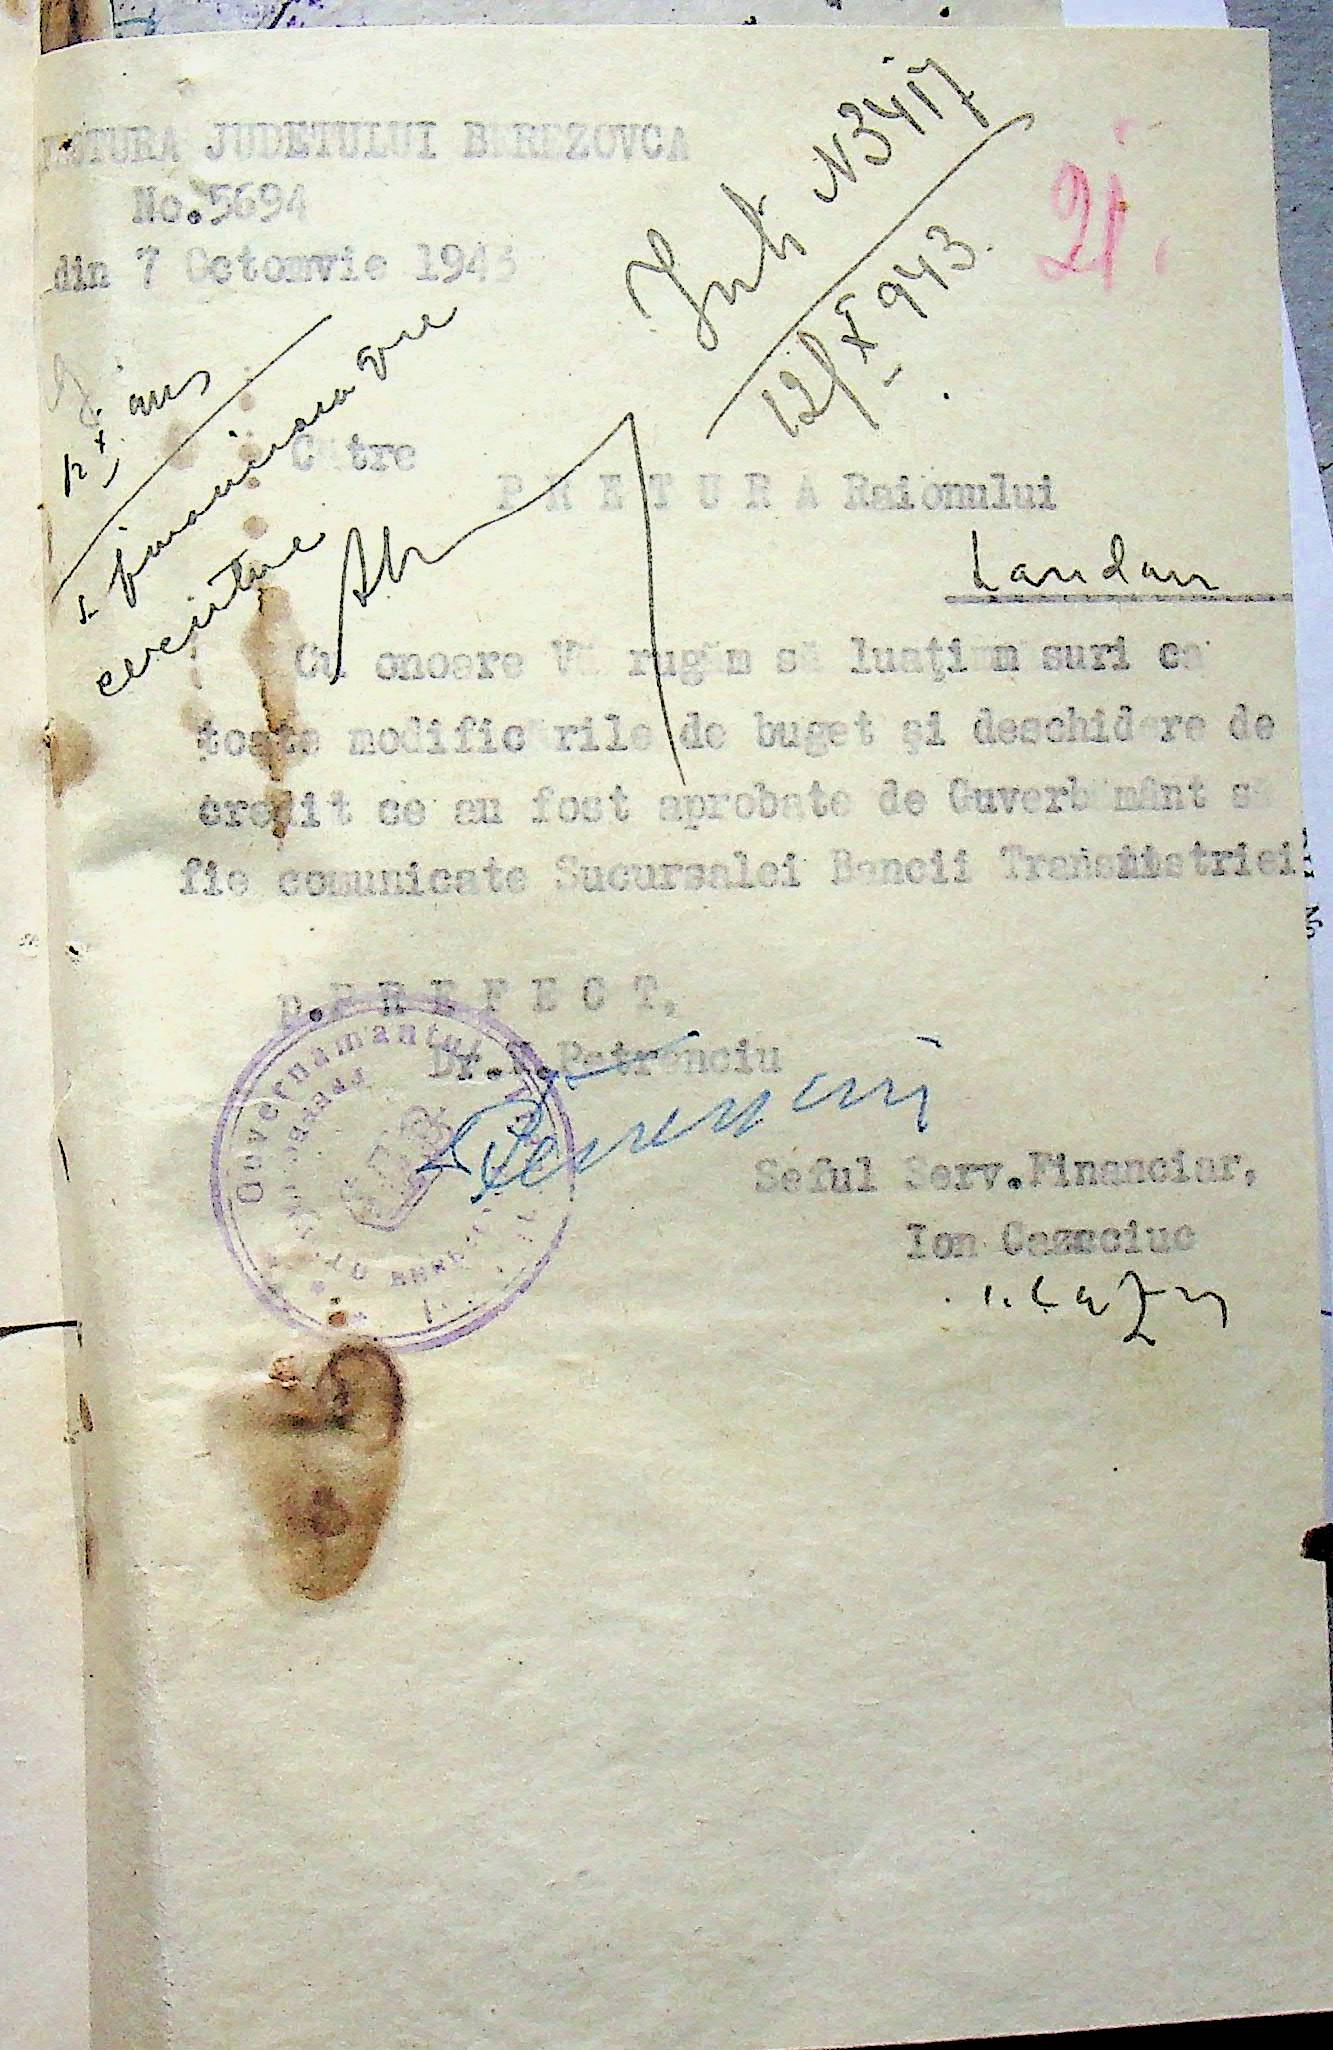 ECTURA JUDETULUI BEREZOVCA
No.5694
din 7 Octomvie 1943
N 3417
12/X 943.
21.
Către
PRETURA Raionului
Landau
Cu onoare Vă rugăm să luaţi măsuri ca
toate modificările de buget şi deschidere de
credit ce au fost aprobate de Guvernământ să
fie comunicate Sucursalei Bancii Transnistriei
p.PREFECT,
Dr. Petrenciu
Guvernamantul
Seful Serv.Financiar,
Ion Cazaciuc